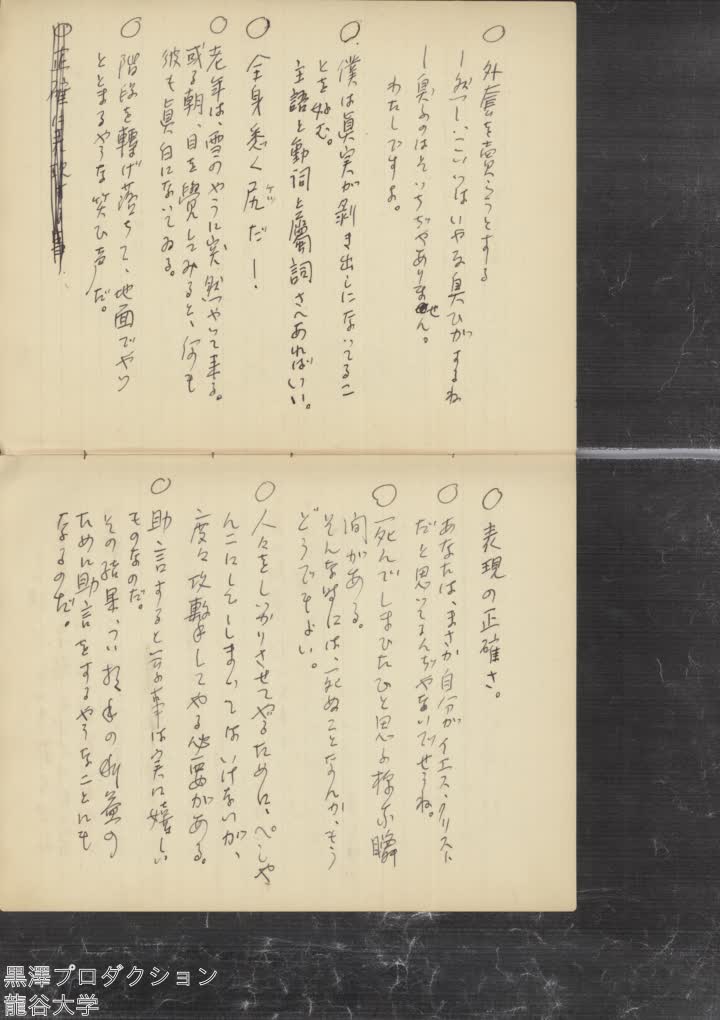 ○ 外套を賣らうとする
―然し、こいつはいやな臭ひがするね
―臭ふのはそいつぢやありません。
わたしですよ。
○ 僕は眞実が剥き出しになつてるこ
とを好む。
主語と動詞と属詞さへあればいい。
○ 全身悉く尻だ!
○ 老年は、雪のやうに突然やつて来る。
或る朝、目を覺してみると、何も
彼も眞白になつてゐる。
○ 階段を轉げ落ちて、地面でやつ
ととまるやうな笑ひ声だ。
○ 表現の正確さ。
○ あなたは、まさか自分がイエス・クリスト
だと思つてるんぢやないでせうね。
○ 死んでしまひたひと思ふ様な瞬
間がある。
そんな時には、死ぬことなんか、もう
どうでもよい。
○ 人々をしつかりさせてやるために、ぺしや
んこにしてしまつてはいけないが、
度々攻撃してやる必要がある。
○ 助言すると云ふ事は実に嬉しい
ものなのだ。
その結果、つい相手の利益の
ために助言をするやうなことにも
なるのだ。
黒澤プロダクション
龍谷大学